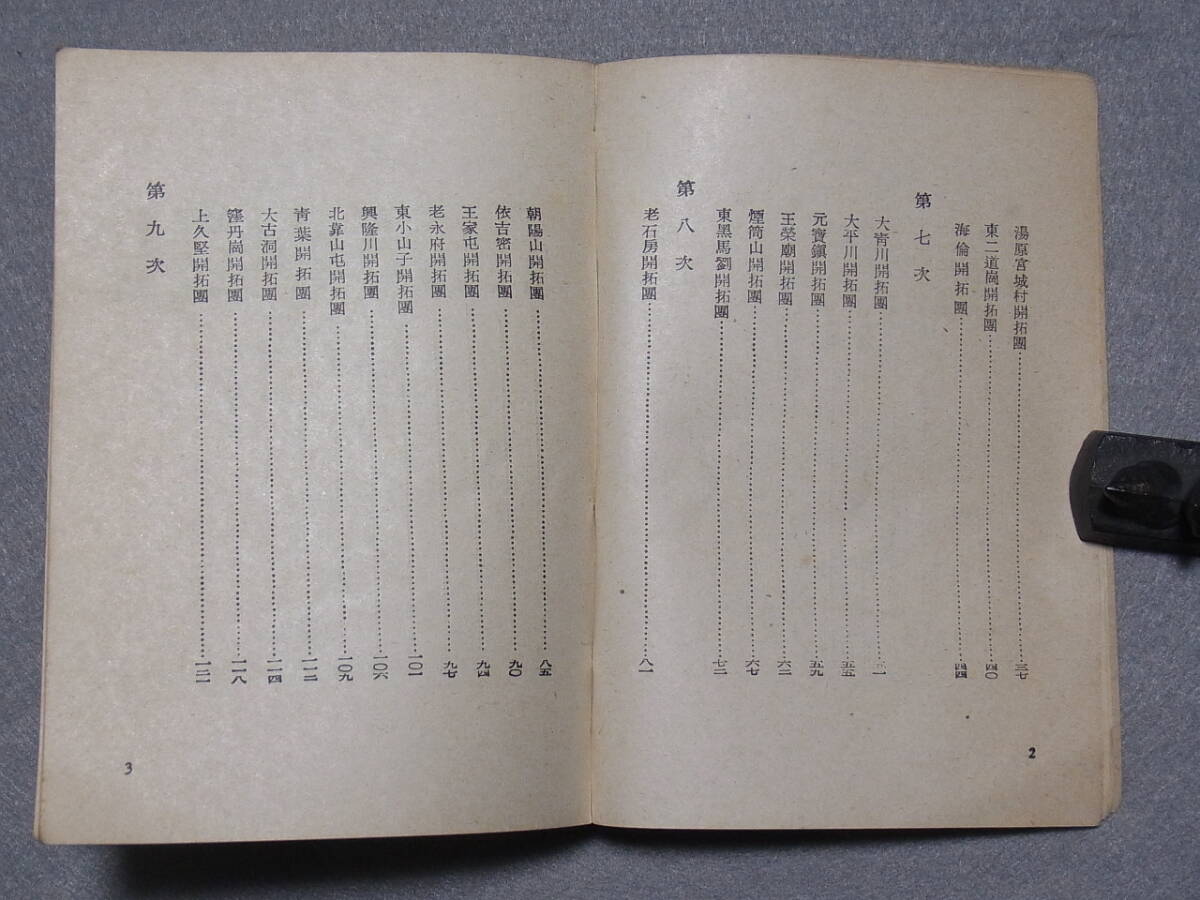 湯原宮城村開拓團……三七
東二道崗開拓團……四〇
海倫開拓團……四四
第七次
大靑川開拓團……五一
大平川開拓團……五五
元寶鎭開拓團……五九
王榮廟開拓團……六二
煙筒山開拓團……六七
東黑馬劉開拓團……七二
第八次
老石房開拓團……八一
2
朝陽山開拓團……八五
依吉密開拓團……九〇
王家屯開拓團……九四
老永府開拓團……九七
東小山子開拓團……一〇一
興隆川開拓團……一〇六
北靠山屯開拓團……一〇九
靑葉開拓團……一一二
大古洞開拓團……一一四
窪丹崗開拓團……一一八
上久堅開拓團……一二一
第九次
3